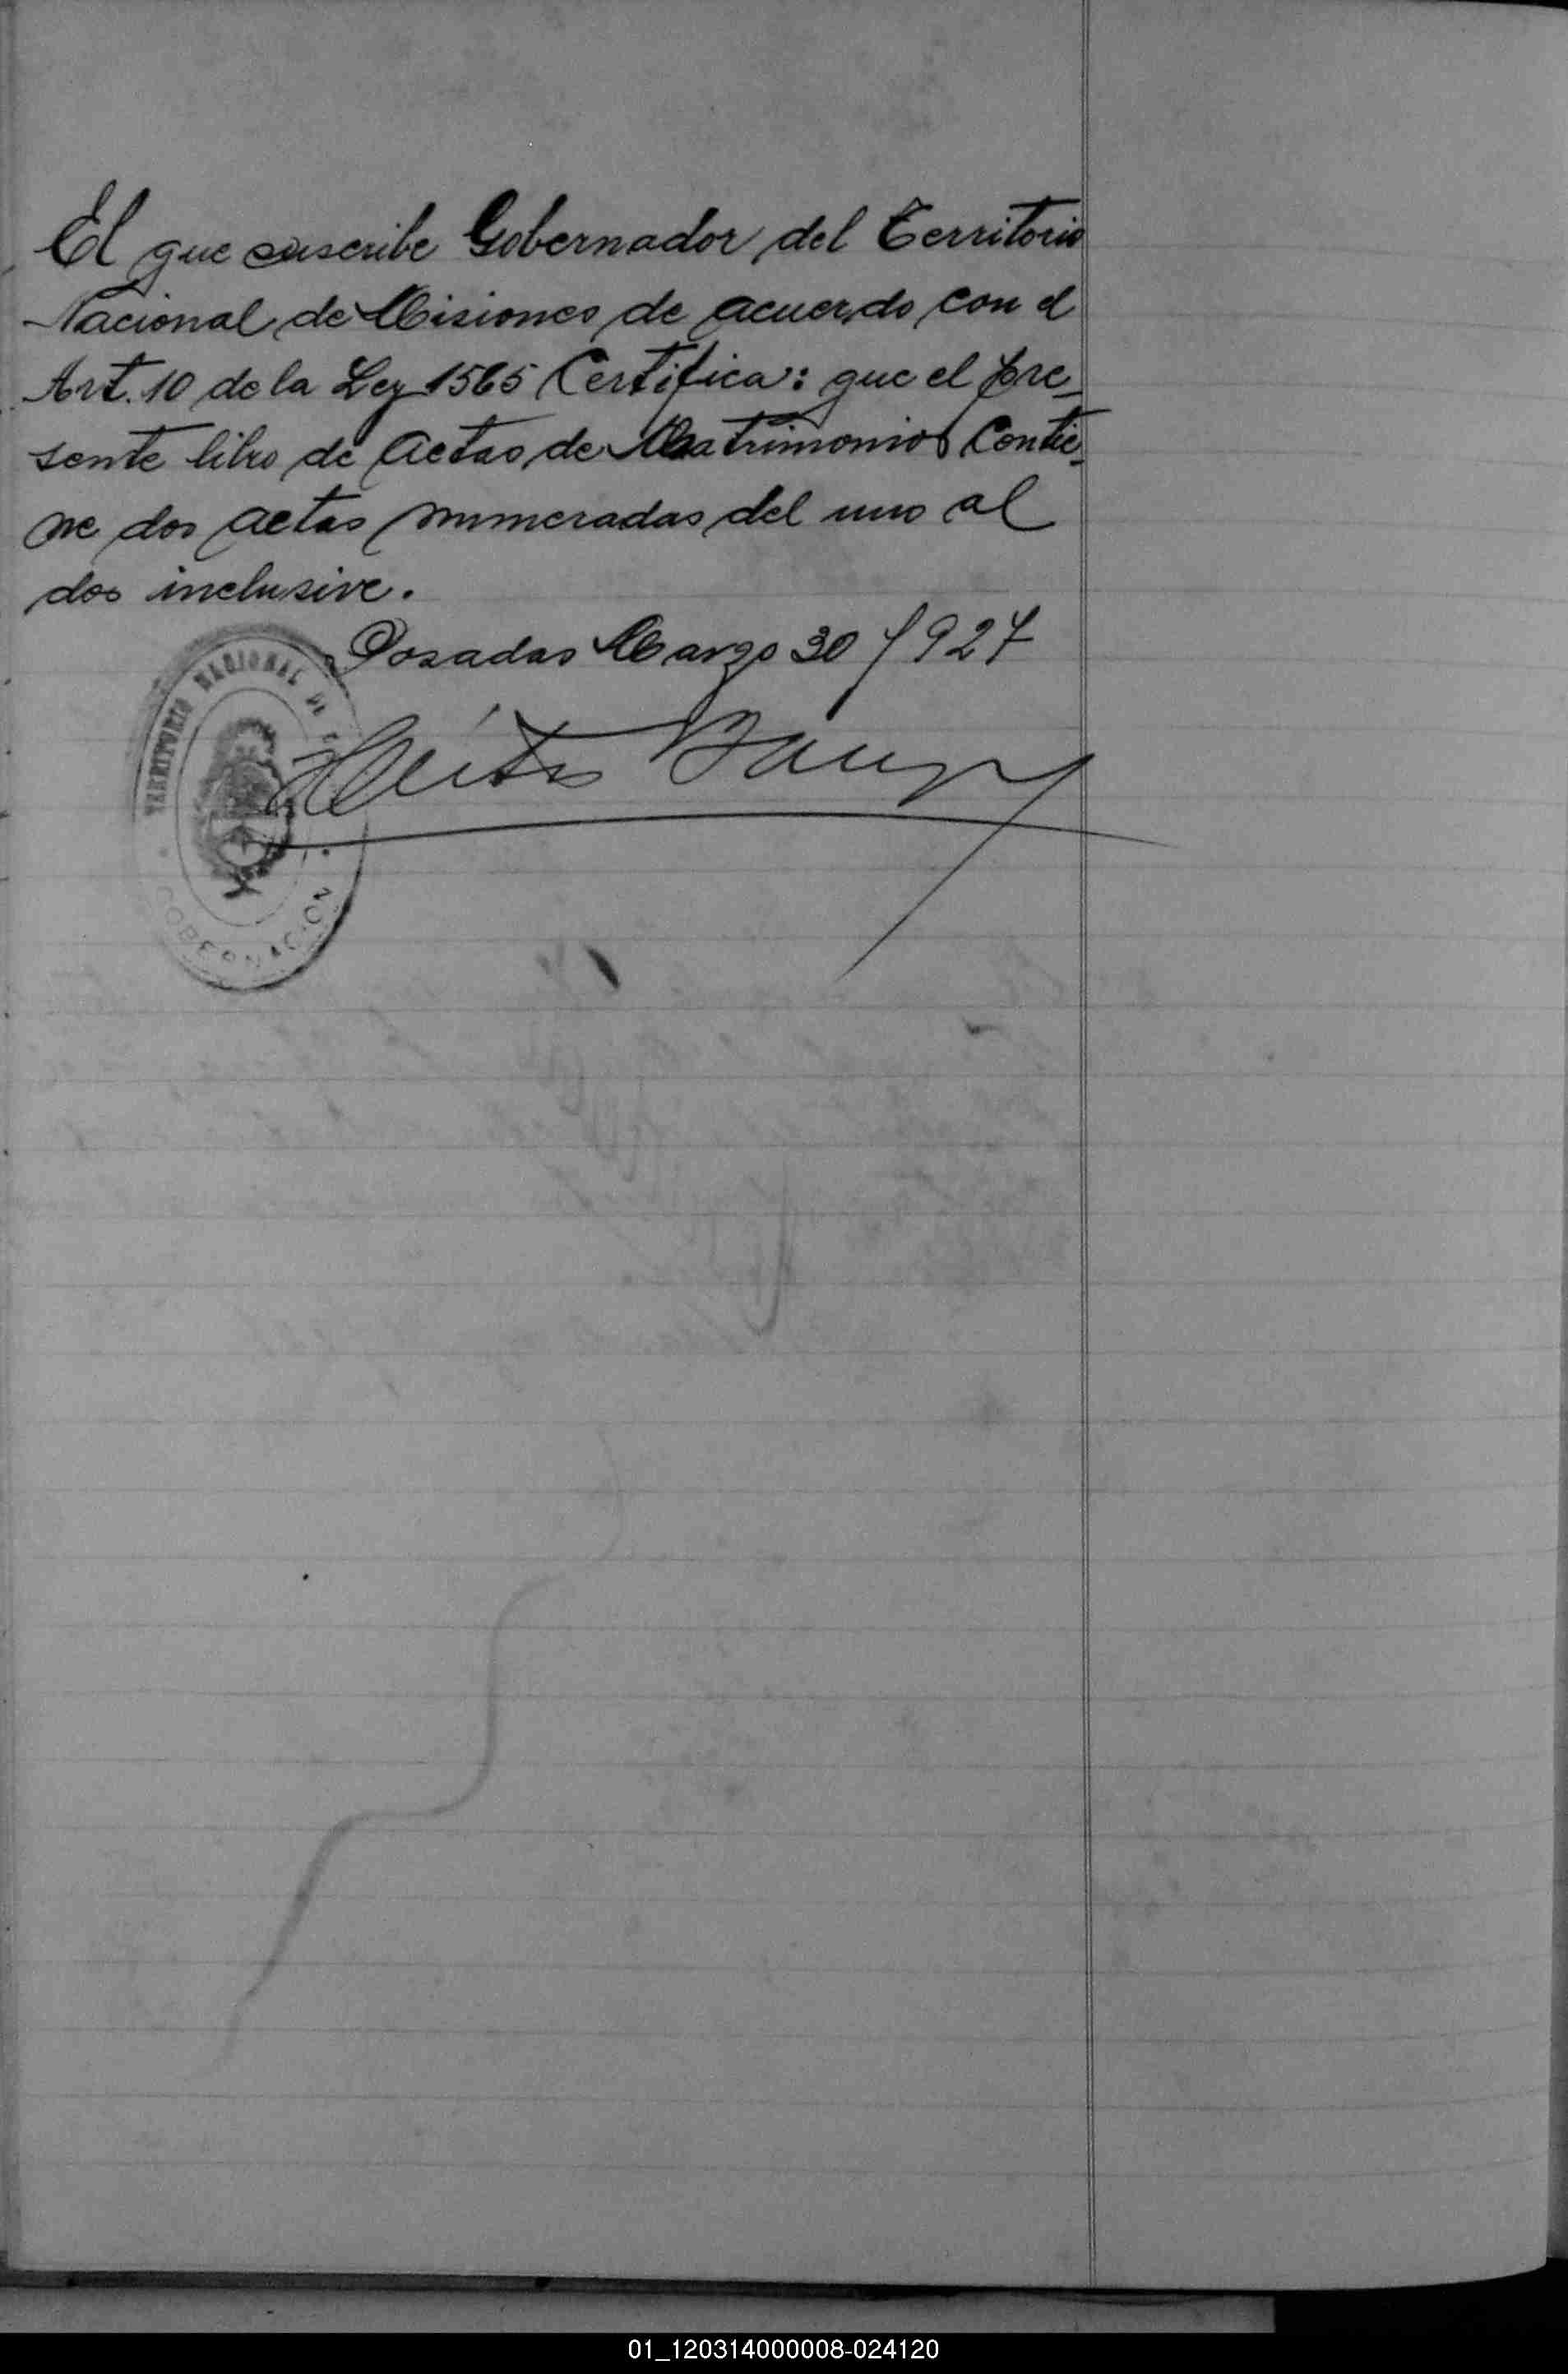 El que suscribe Gobernador del Territorio
Nacional de Misiones de acuerdo con el
Art. 10 de la Ley 1565 Certifica: que el pre-
sente libro de actas de Matrimonios Contie-
ne dos actas numeradas del uno al
dos inclusive.
Posadas Marzo 30/927
TERRITORIO NACIONAL DE
GOBERNACION
01_120314000008-024120